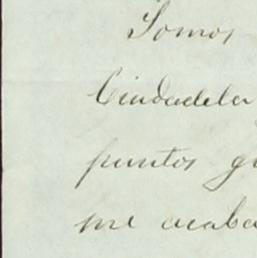 Somos
Ciudadela
puntos
me acaba